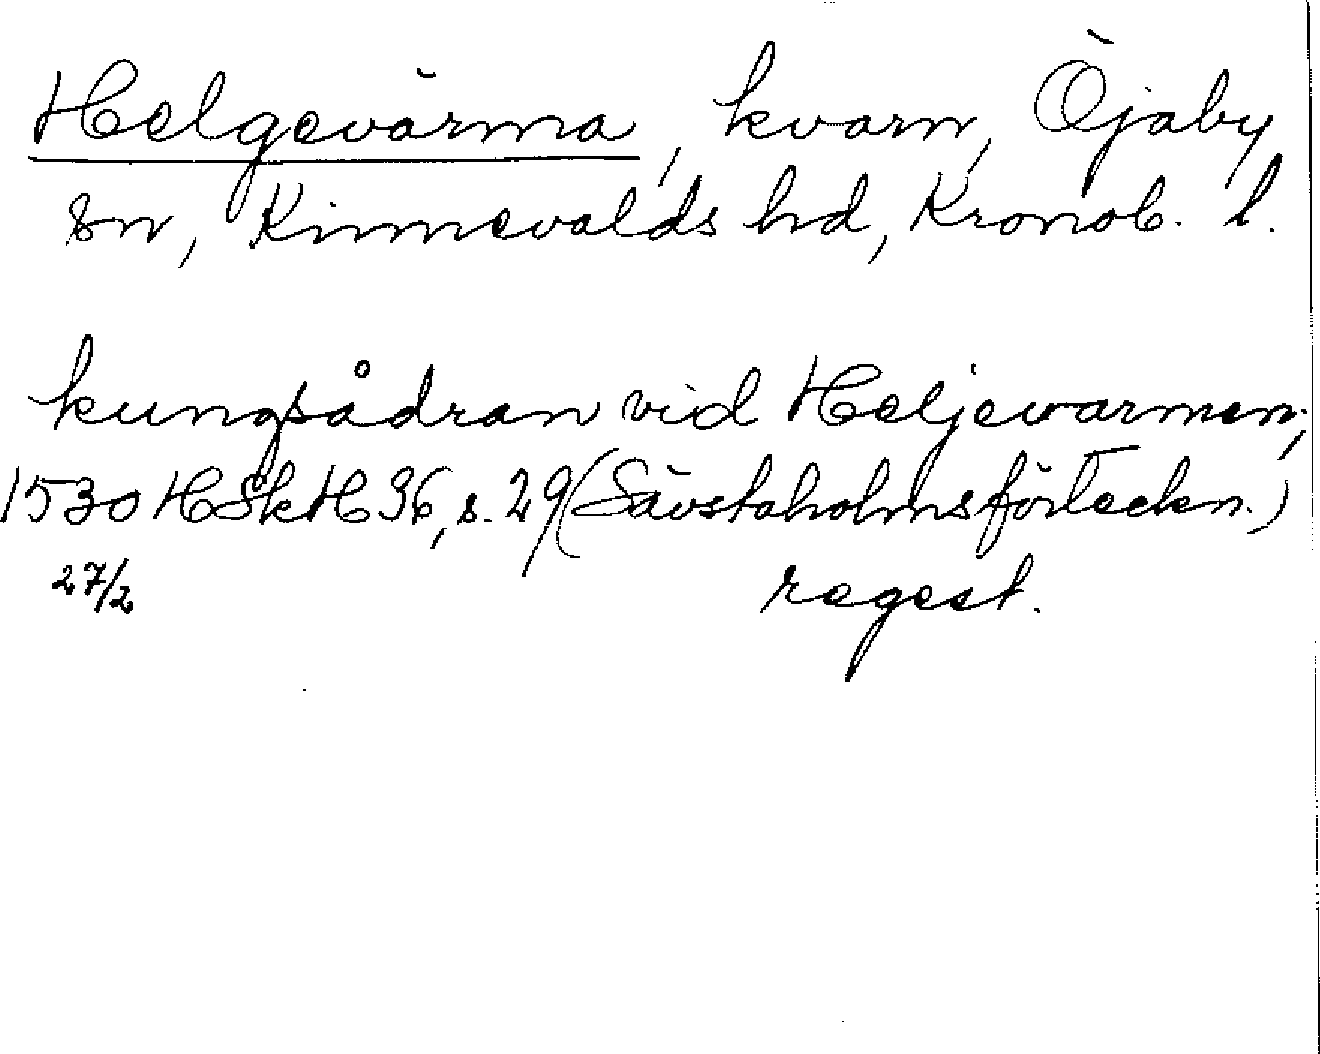 Helgevärma, kvarn, Öjaby
sn, Kinnevalds hd, Kronob. l.
kungsådran vid Heljevarmen;
1530 HSkH 36, s. 29 (Sävstaholmsförteckn.)
27/2 regest.